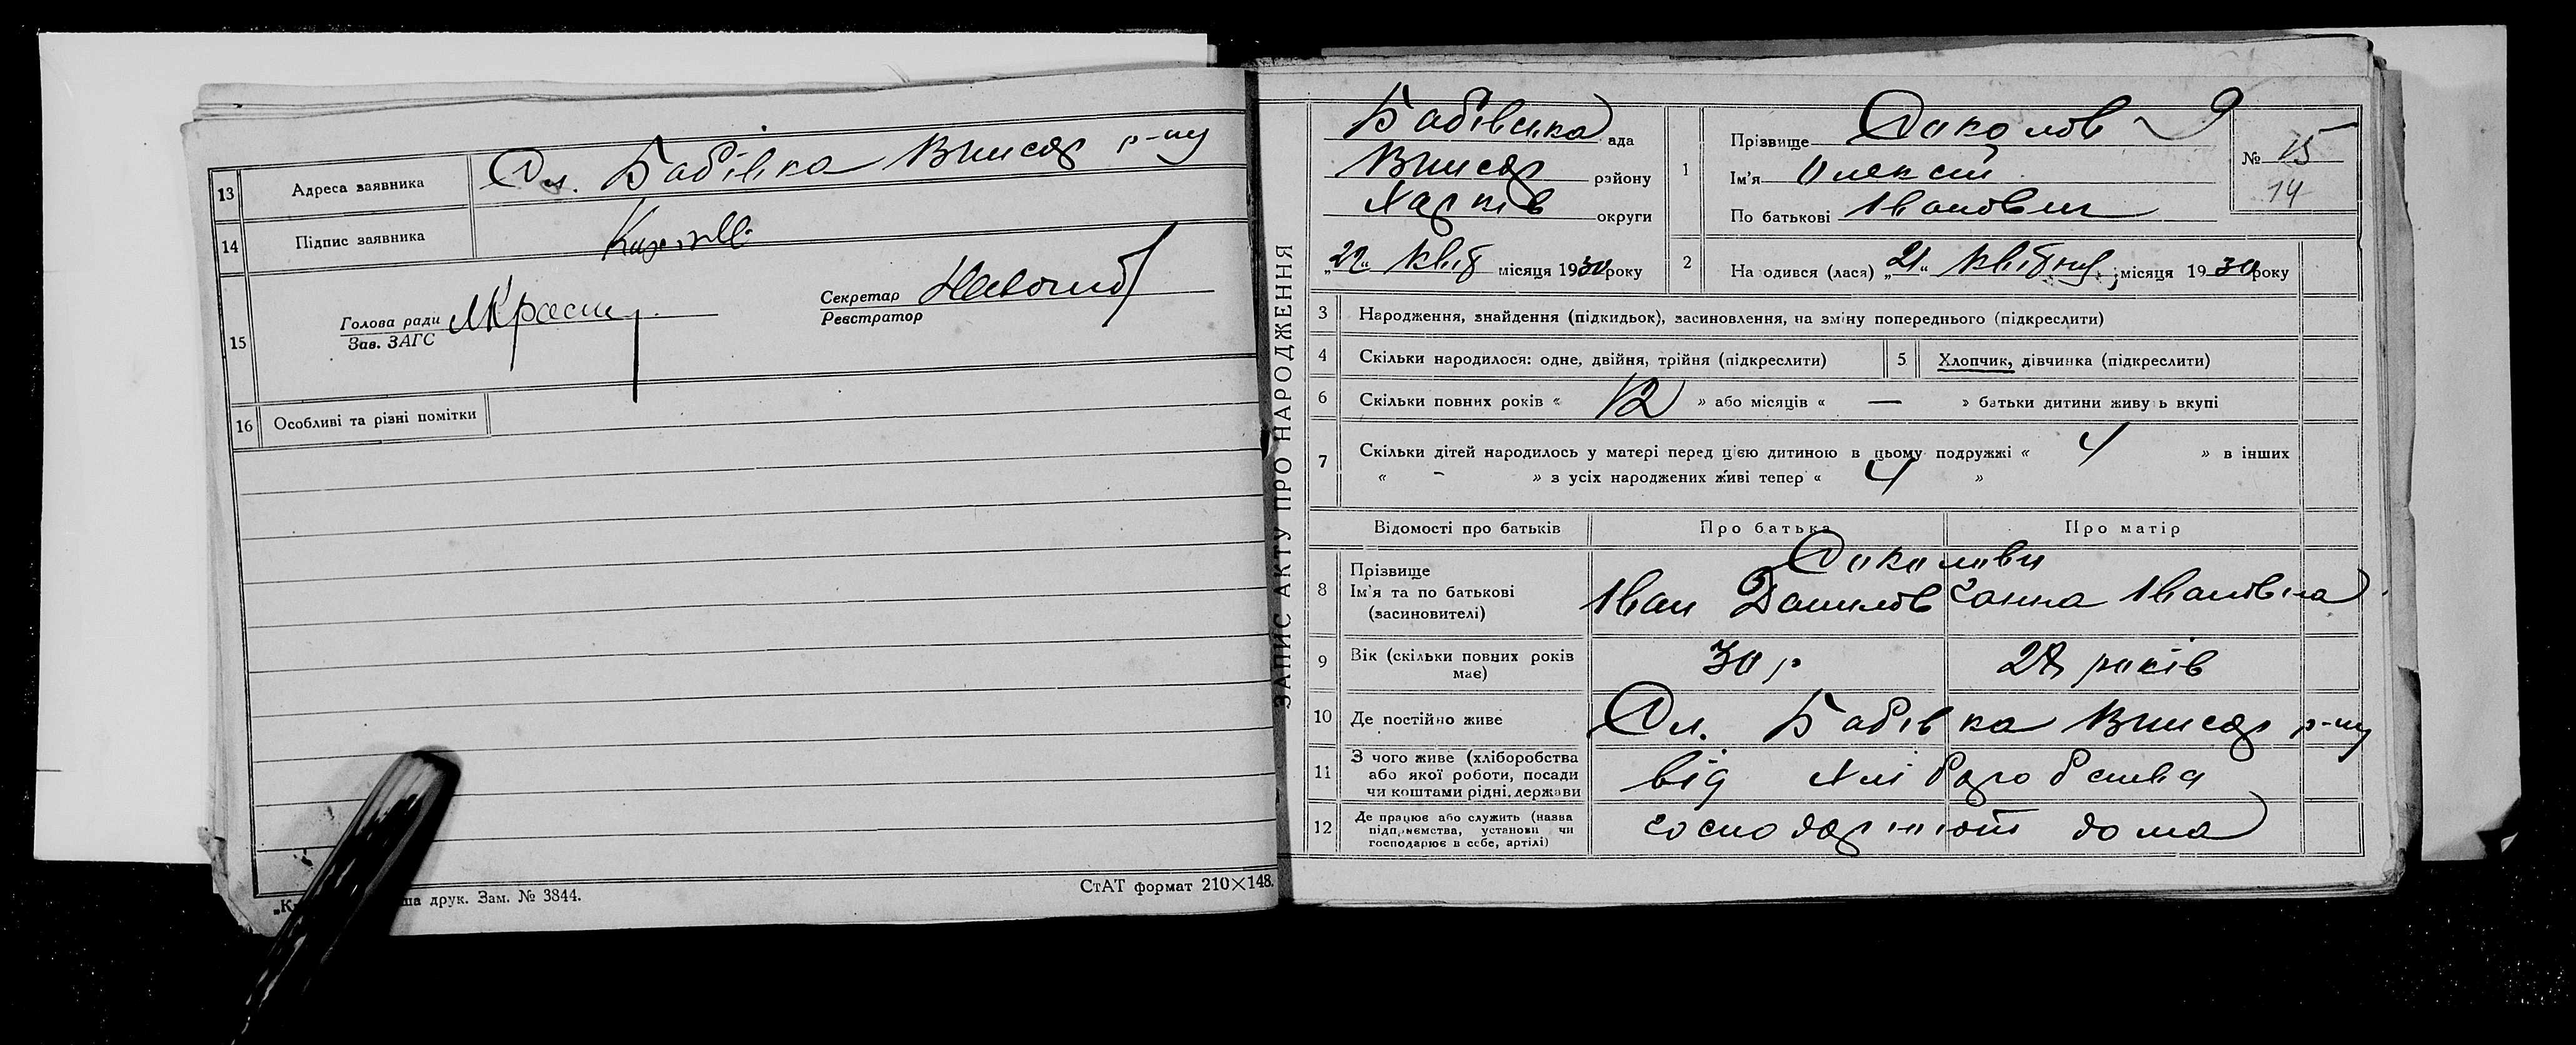 13 Адреса заявника Сл. Бабівка Вписар р-ну
14 Підпис заявника
15 Голова ради Зав. ЗАГС
Секретар Реєстратор
16 Особливі та різні помітки
ша друк. Зам. № 3844.
СтАТ формат 210×148.
ЗАПИС АКТУ ПРО НАРОДЖЕННЯ
Бабівська ада
району
Харків округи
"22" Квіт місяця 1930 року
1 Прізвище Соколов
Ім'я Олексій
По батькові Іванович
№ 15
14
2 На одився (лася) "21" Квітня місяця 1930 року
3 Народження, знайдення (підкидьок), засиновлення, на зміну попереднього (підкреслити)
4 Скільки народилося: одне, двійня, трійня (підкреслити)
5 Хлопчик, дівчинка (підкреслити)
6 Скільки повних років « 12 » або місяців « — » батьки дитини живу ь вкупі
7 Скільки дітей народилось у матері перед цією дитиною в цьому подружжі « 4 » в інших
« - » з усіх народжених живі тепер « 4 »
Відомості про батьків Про батька Про матір
8 Прізвище
Ім'я та по батькові
(засиновителі)
Соколови
Іван Данилов Ганна Іванівна
9 Вік (скільки повних років має) 30 р 28 років
10 Де постійно живе Сл. Бабівка р-ну
11 З чого живе (хліборобства
або якої роботи, посади
чи коштами рідні, держави
від хліборобства
12 Де працює або служить (назва
підприємства, установи чи
господарює в себе, артілі)
господарюют дома